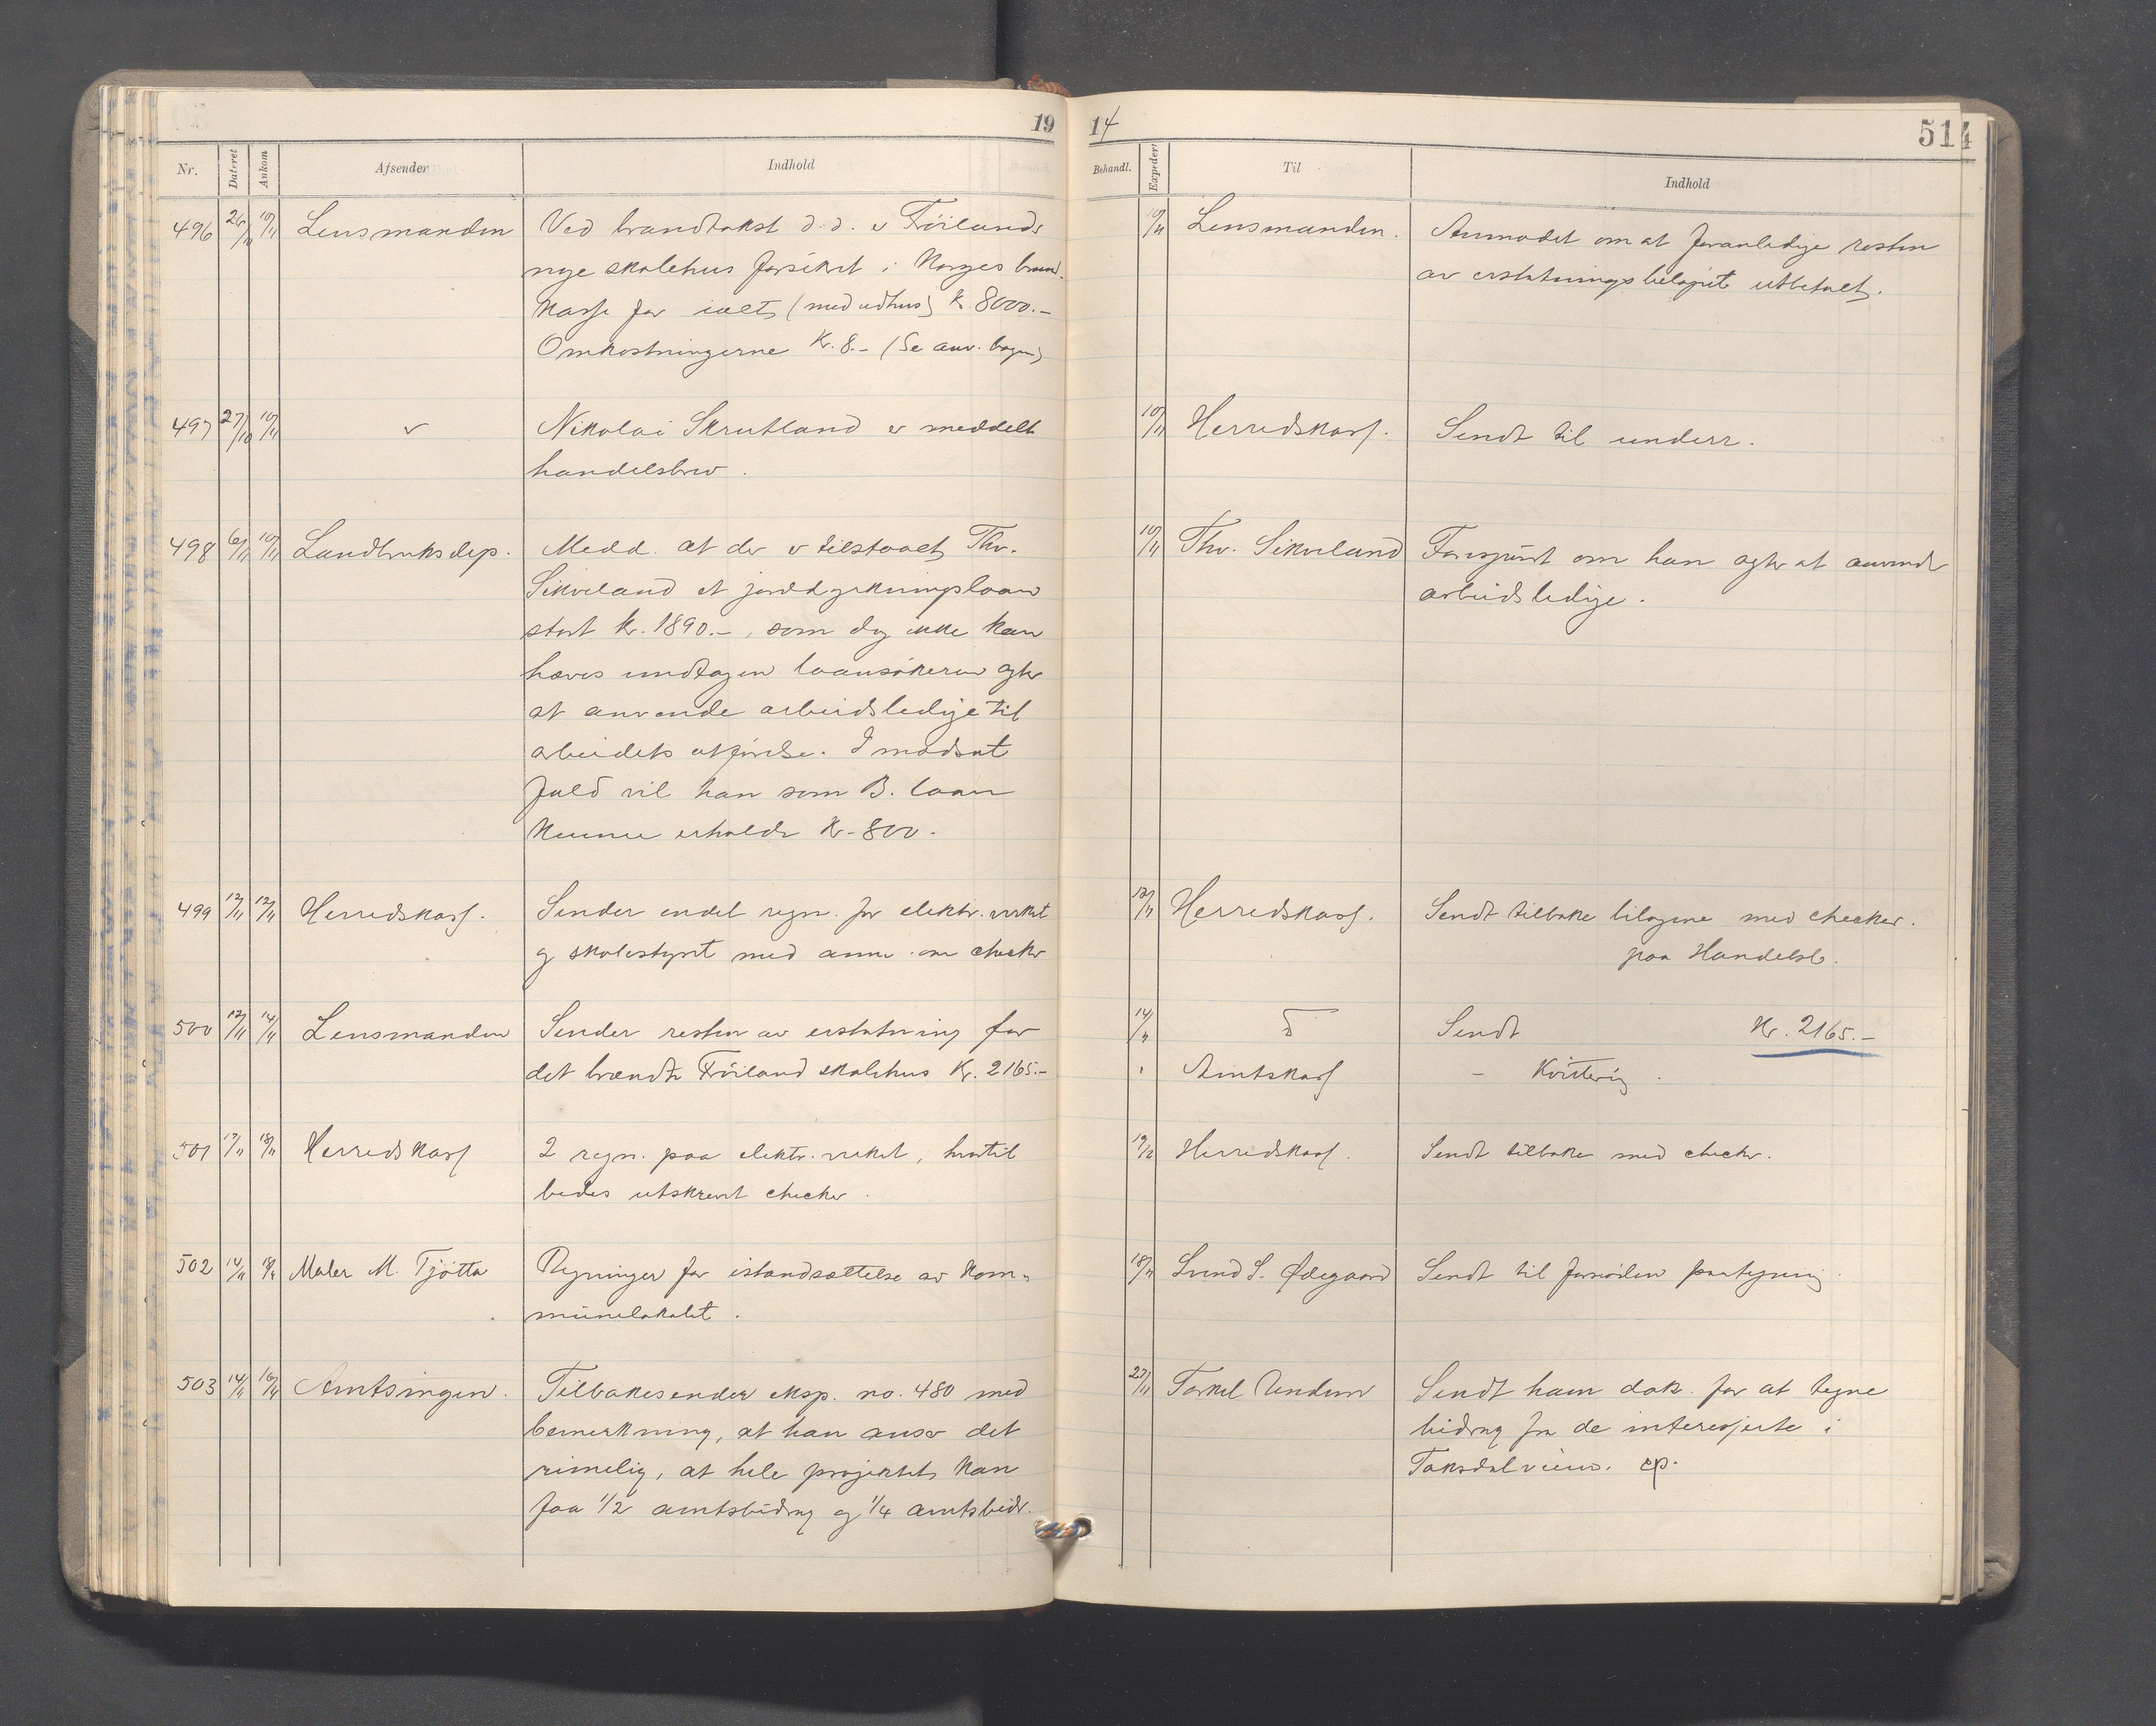 19 14 514
Nr. Dateret Ankom Afsender Indhold Behandl. Expedert Til Indhold
496 26/10 10/11 Lensmanden Ved brandtakst d.d. er Fröilands
nye skolehus forsikret i Norges brand-
kasse for ialt (med udhus) kr. 8000.-
Omkostningerne Kr. 8.- (Se anv. bogen)
10/11 Lensmanden. Anmodet om at foranledige resten
av erstatningsbelöpet utbetalt.
497 27/10 10/11 " Nikolai Skrutland er meddelt
handelsbrev.
10/11 Herredskass. Sendt til underr.
498 6/11 10/11 Landbruksdep. Medd. at der er tilstaaet Thv.
Sikveland et jorddyrkningslaan
stort kr. 1890.-, som dog ikke kan
hæves undtagen laansökeren agter
at anvende arbeidsledige til
arbeidets utförelse. I modsat
fald vil han som B. laan
kunne erholde Kr. 800.-
10/11 Thv. Sikveland Forespurt om han agter at anvende
arbeidsledige.
499 12/11 12/11 Herredskass. Sender endel regn. for elektr. verket
og skolestyret med anm. om checker
12/11 Herredskass. Sendt tilbake bilagene med checker.
paa Handelsb.
500 12/11 14/11 Lensmanden Sender resten av erstatning for
det brændte Fröiland skolehus Kr. 2165.-
14/11 d Sendt Kr. 2165.-
" Amtskass - Kvittering.
501 17/11 18/11 Herredskass 2 regn. paa elektr. verket, hvortil
bedes utskrevet checker.
19/11 Herredskass. Sendt tilbake med checker.
502 14/11 18/11 Maler M. Tjötta Regninger for istandsættelse av kom-
munelokalet.
18/11 Svend S. Ødegaard Sendt til fornöden paategning.
503 14/11 16/11 Amtsingen. Tilbakesender eksp. no. 480 med
bemerkning, at han anser det
rimelig, at hele projektet kan
faa 1/2 amtsbidrag og 1/4 amtsbidr.
27/11 Torkel Undem Sendt ham dok. for at tegne
bidrag fra de interesserte i
Taksdalveien. ep.